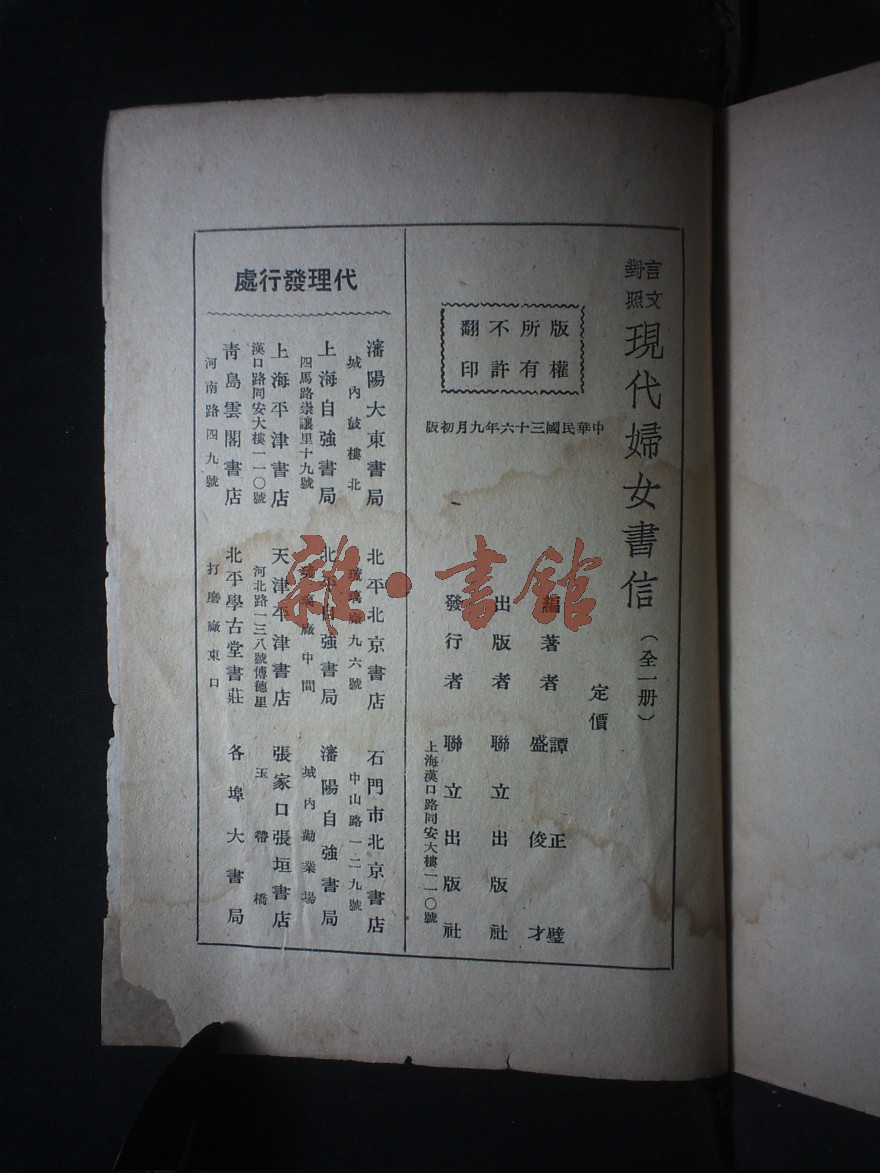 言文對照
現代婦女書信（全一册）
定價
編著者 譚正璧
盛俊才
出版者 聯立出版社
發行者 聯立出版社
上海漢口路同安大樓一一〇號
版權
所有
不許
翻印
中華民國三十六年九月初版
代理發行處
瀋陽大東書局 北平北京書店 石門市北京書店
城內鼓樓北 琉璃廠九六號 中山路一二九號
上海自強書局 北平自強書局 瀋陽自強書局
四馬路崇讓里十九號 琉璃廠中間 城內勸業場
上海平津書店 天津平津書店 張家口張垣書店
漢口路同安大樓一一〇號 河北路一三八號傅德星 玉帶橋
青島雲閣書店 北平學古堂書莊 各埠大書局
河南路四九號 打磨廠東口
雜·書館